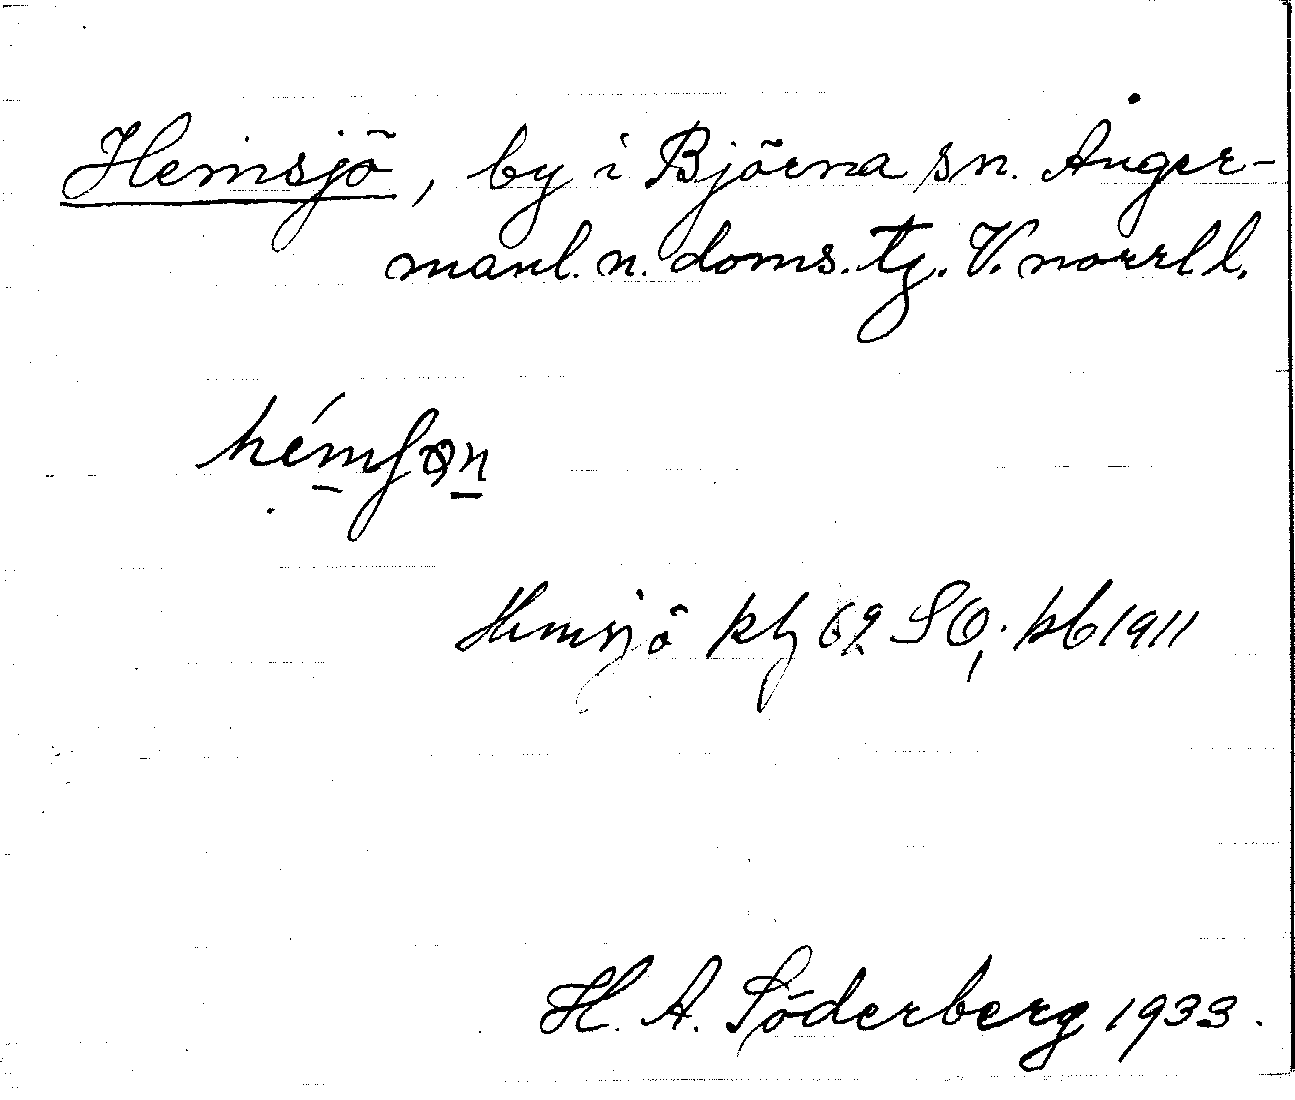 Hemsjö, by i Björna sn. Ånger-
manl. n. doms. tg. V. norrl l.
Hemsjö ktj 62 SO; kb 1911
H. A. Söderberg 1933.